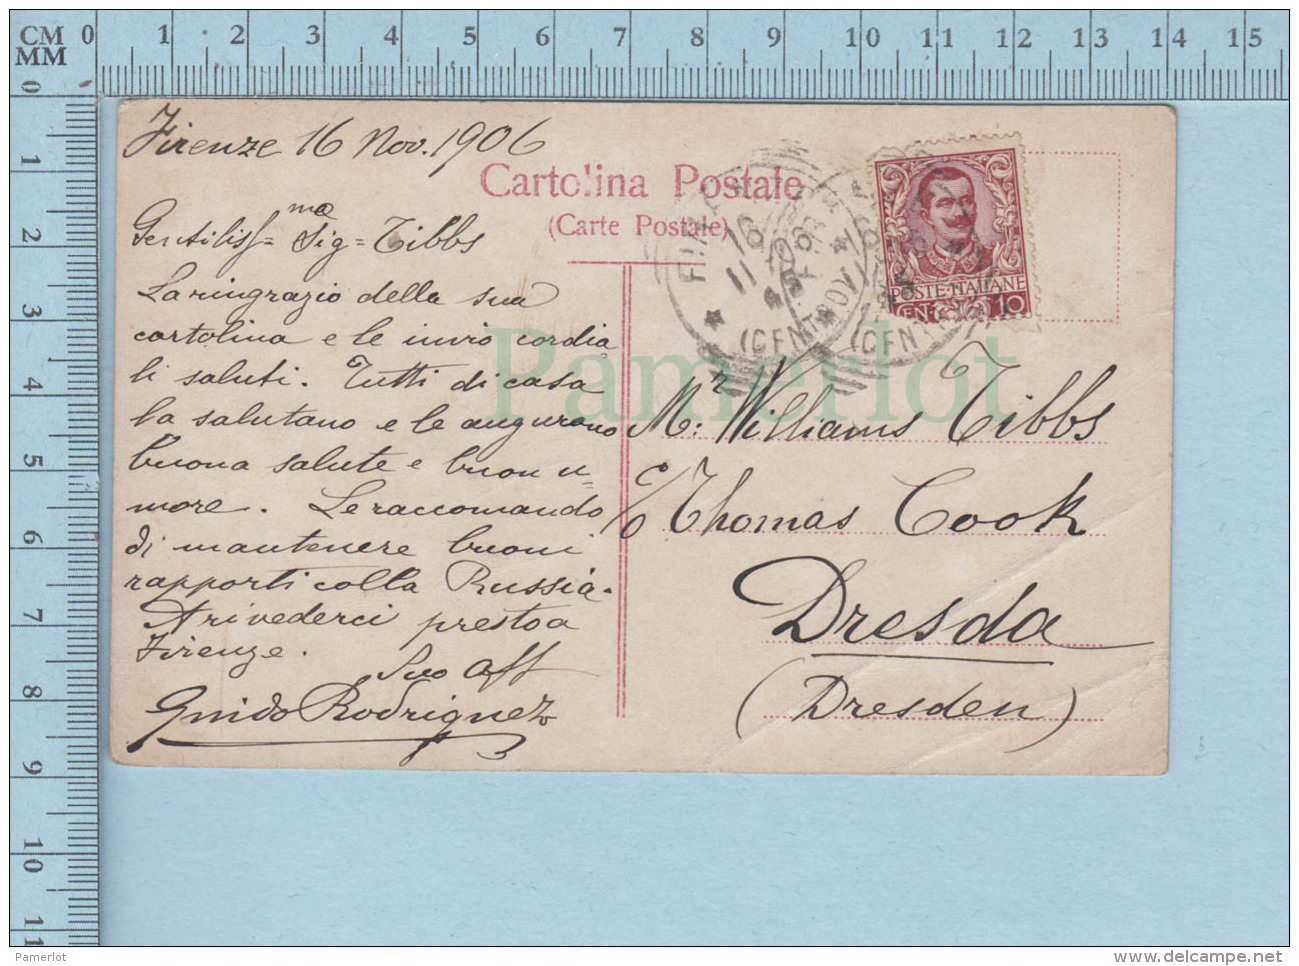 CM 0 1 2 3 4 5 6 7 8 9 10 11 12 13 14 15
MM
0 1 2 3 4 5 6 7 8 9 10 11
Firenze 16 Nov. 1906
Cartolina Postale
(Carte Postale)
Gentiliss= ma Sig= Tibbs
La ringrazio della sua
cartolina e le invio cordia
li saluti. Tutti di casa
la salutano e le augurano
buona salute e buon u=
more. Le raccomando
di mantenere buoni
rapporti colla Russia.
Arivederci presto a
Firenze.
Suo aff
Guido Rodriguez
FIRENZE
16
11
(CENTRO)
(CENTRO)
POSTE·ITALIANE
CEN 10
Mr. Williams Tibbs
c/o Thomas Cook
Dresda
(Dresden)
Pamerlot
Pamerlot
www.delcampe.net